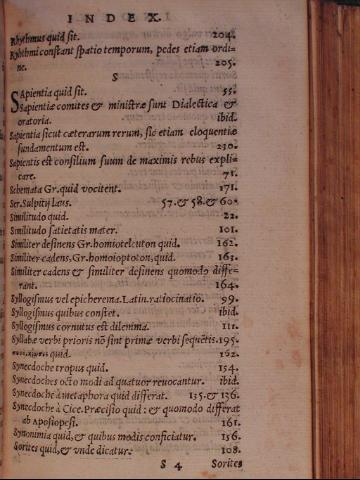 INDEX.
Rhythmus quid sit. 204.
Rhithmi constant spatio temporum, pedes etiam ordi-
ne. 205.
S
SApientia quid sit. 55.
Sapientiæ comites & ministræ sunt Dialectica &
oratoria. ibid.
Sapientia sicut cæterarum rerum, sic etiam eloquentiæ
fundamentum est. 230.
Sapientis est consilium suum de maximis rebus expli-
care. 71.
Schemata Gr. quid vocitent. 171.
Ser. Sulpitij laus. 57. & 58. & 60.
Similitudo quid. 22.
Similitudo satietatis mater. 101.
Similiter desinens Gr. homioteleuton quid. 162.
Similiter cadens, Gr. homoioptoton, quid. 163.
Similiter cadens & similiter desinens quomodo diffe-
rant. 164.
Syllogismus vel epicherema. Latin. ratiocinatio. 99.
Syllogismus quibus constet. ibid.
Syllogismus cornutus est dilemma. 111.
Syllabæ verbi prioris nō sint primæ verbi sequētis. 195.
quid. 162.
Synecdoche tropus quid. 154.
Synecdoches octo modi ad quatuor revocantur. ibid.
Synecdoche à metaphora quid differat. 135. & 136.
Synecdoche à Cice. Præcisio quid: & quomodo differat
ab Aposiopesi. 161.
Synonimia quid, & quibus modis conficiatur. 156.
Sorites quid, & vnde dicatur. 108.
S 4 Sorites